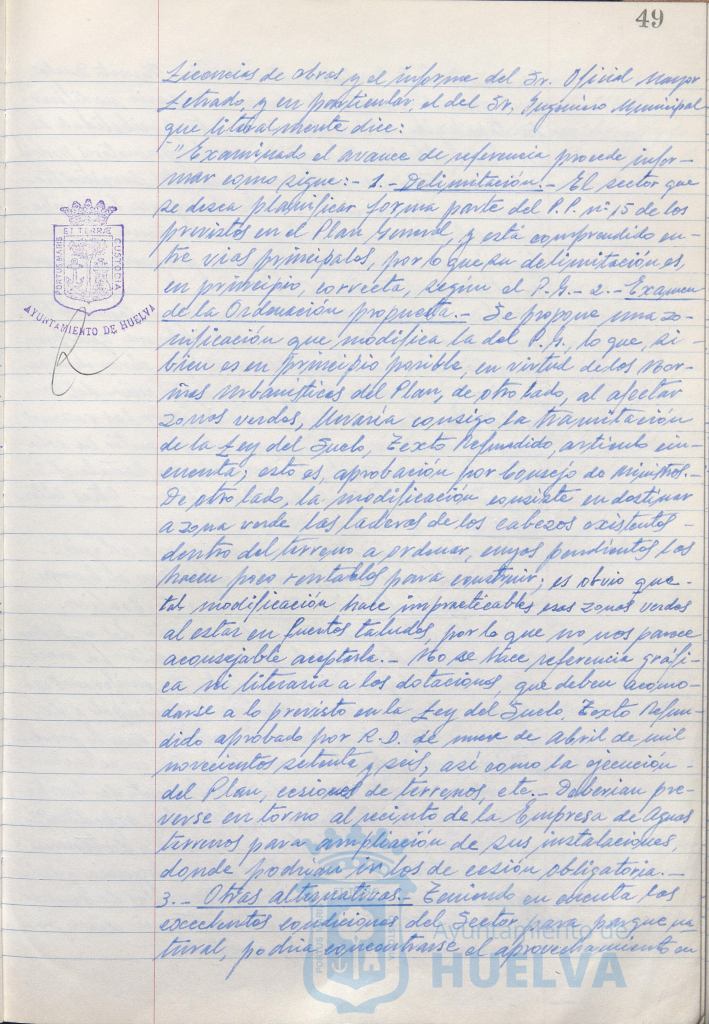 49
Licencias de obras, y el informe del Sr. Oficial Mayor
Letrado, y en particular, el del Sr. Ingeniero Municipal
que literalmente dice:
"Examinado el avance de referencia procede infor-
mar como sigue:- 1.- Delimitación.- El sector que
se desea planificar forma parte del P.P. nº 15 de los
previstos en el Plan General, y está comprendido en-
tre vias principales, por lo que su delimitación es,
en principio, correcta, según el P.G.- 2.- Examen
de la Ordenación propuesta.- Se propone una zo-
nificación que modifica la del P.G., lo que, si
bien es en principio posible, en virtud de las Nor-
mas Urbanísticas del Plan, de otro lado, al afectar
zonas verdes, llevaría consigo la tramitación
de la Ley del Suelo, Texto Refundido, artículo cin-
cuenta; esto es, aprobación por Consejo de Ministros.-
De otro lado, la modificación consiste en destinar
a zona verde las laderas de los cabezos existentes -
dentro del terreno a ordenar, cuyas pendientes las
hacen poco rentables para construir; es obvio que-
tal modificación hace impracticables esas zonas verdes
al estar en fuertes taludes, por lo que no nos parece
aconsejable aceptarla.- No se hace referencia gráfi-
ca ni literaria a las dotaciones, que deben acomo-
darse a lo previsto en la Ley del Suelo, Texto Refun-
dido aprobado por R.D. de nueve de Abril de mil
novecientos setenta y seis, así como la ejecución -
del Plan, cesiones de terrenos, etc.- Deberían pre-
verse en torno al recinto de la Empresa de Aguas
terrenos para ampliación de sus instalaciones,
donde podrían ir los de cesión obligatoria.-
3.- Otras alternativas.- Teniendo en cuenta las
excelentes condiciones del Sector para parque na-
tural, podría concentrarse el aprovechamiento en
PORTUS MARIS ET TERRAE CUSTODIA
AYUNTAMIENTO DE HUELVA
Ayuntamiento de
HUELVA